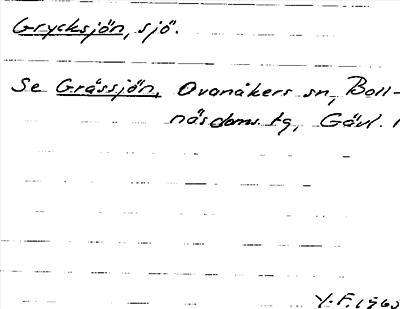 Grycksjön, sjö.
Se Gråssjön, Ovanåkers sn, Boll-
näs doms. tg, Gävl. l
Y.F. 1965